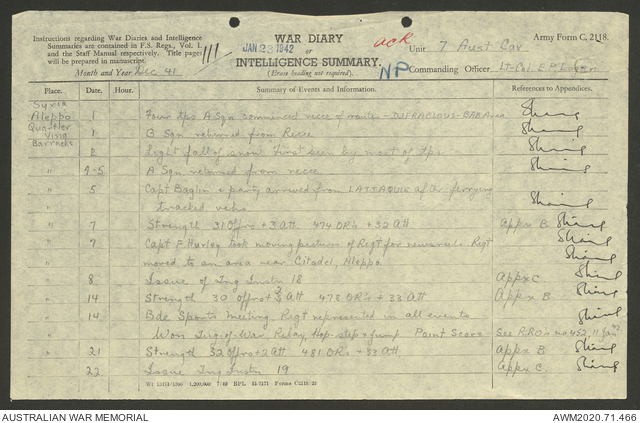 Instructions regarding War Diaries and Intelligence
Summaries are contained in F.S. Regs., Vol. I.
and the Staff Manual respectively. Title pages
will be prepared in manuscript.
Month and Year Dec 41
111
JAN 23 1942
WAR DIARY
or
INTELLIGENCE SUMMARY.
(Erase heading not required).
ack
NP
Army Form C. 2118.
Unit 7 Aust Cav
Commanding Officer Lt-Col. E.P.
Place. Date. Hour. Summary of Events and Information. References to Appendices.
Syria
Aleppo 1 Four tps A Sqn commenced recce of routes -
Quartier 1 B Sqn returned from Recce
Barracks 2 Light fall of snow. First seen by most of tps
" 2-5 A Sqn returned from recce
" 5 Capt Baglin & party arrived from LATTAQUIE after ferrying
tracked vehs.
" 7 Strength 31 offrs + 3 att 474 OR's + 32 att Appx B
" 7 Capt F. Hurley took moving pictures of Regt for newsreels. Regt
moved to an area near Citadel, Aleppo
" 8 Issue of Tng Instn 18 Appx C
" 14 Strength 30 offrs + 3 att 478 OR's + 33 att Appx B
" 14 Bde Sports meeting Regt represented in all events
Won Tug-of-War, Relay, Hop-step & jump Point Score See R.R.O's no 452,
" 21 Strength 32 offrs + 2 att 481 OR's + 33 att Appx B
" 22 Issue Tng Instn 19 Appx C.
AUSTRALIAN WAR MEMORIAL
AWM2020.71.466